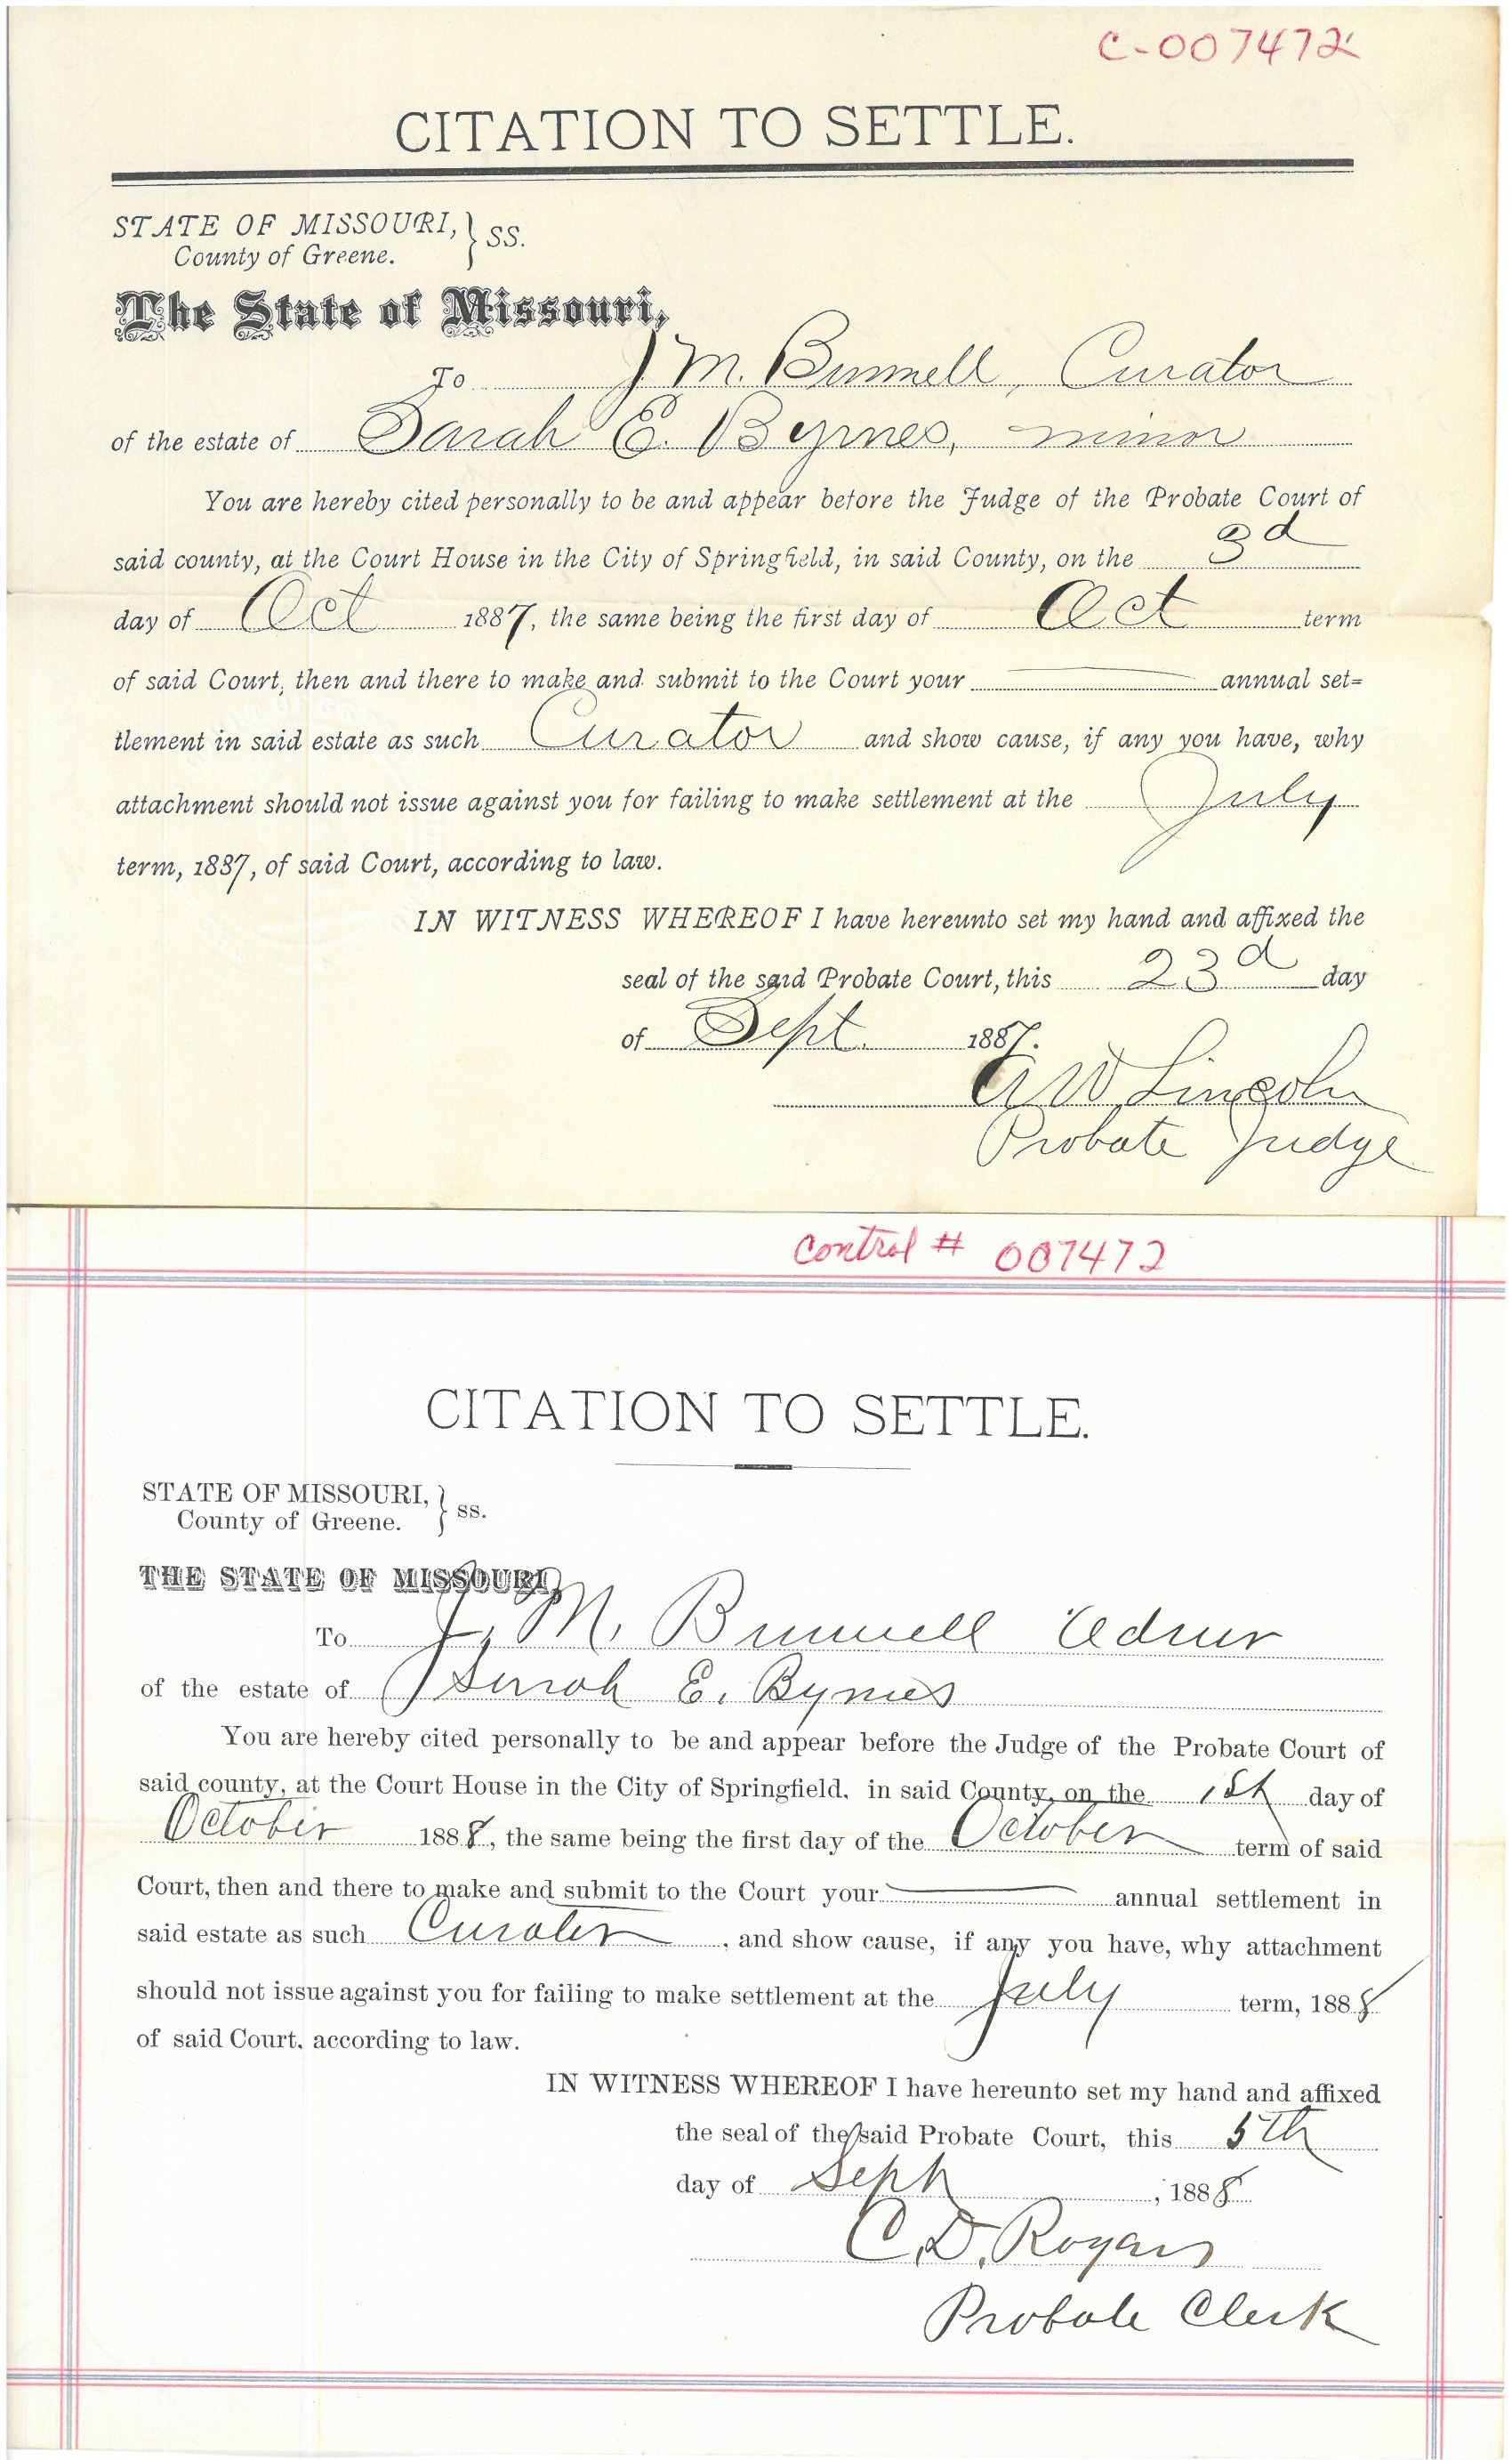 C-007472
CITATION TO SETTLE.
STATE OF MISSOURI, } SS.
County of Greene.
The State of Missouri,
To J M. Bunnell, Curator
of the estate of Sarah E. Byrnes, minor
You are hereby cited personally to be and appear before the Judge of the Probate Court of
said county, at the Court House in the City of Springfield, in said County, on the 3d
day of Oct 1887, the same being the first day of Oct term
of said Court, then and there to make and submit to the Court your annual set=
tlement in said estate as such Curator and show cause, if any you have, why
attachment should not issue against you for failing to make settlement at the July
term, 1887, of said Court, according to law.
IN WITNESS WHEREOF I have hereunto set my hand and affixed the
seal of the said Probate Court, this 23d day
of Sept. 1887.
A W Lincoln
Probate Judge
Control # 007472
CITATION TO SETTLE.
STATE OF MISSOURI, } ss.
County of Greene.
THE STATE OF MISSOURI,
To J. M. Bunnell
of the estate of Sarah E. Byrnes
You are hereby cited personally to be and appear before the Judge of the Probate Court of
said county, at the Court House in the City of Springfield, in said County, on the 1st day of
October 1888, the same being the first day of the October term of said
Court, then and there to make and submit to the Court your annual settlement in
said estate as such Curator, and show cause, if any you have, why attachment
should not issue against you for failing to make settlement at the July term, 1888
of said Court, according to law.
IN WITNESS WHEREOF I have hereunto set my hand and affixed
the seal of the said Probate Court, this 5th
day of Sept, 1888
C. D. Rogers
Probate Clerk